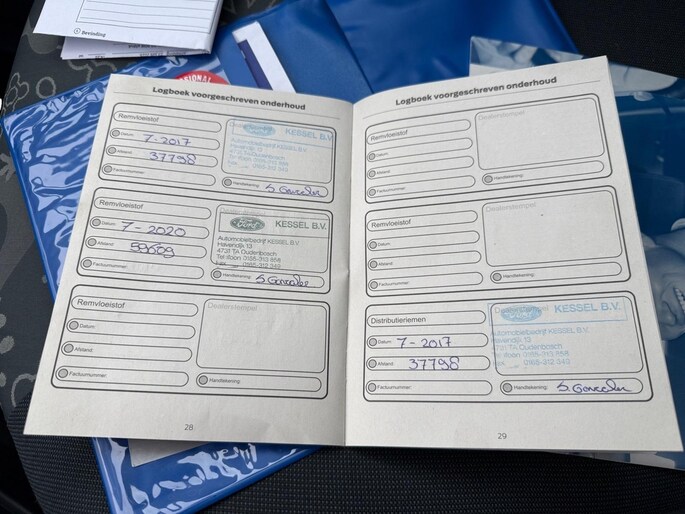 Bevinding
Logboek voorgeschreven onderhoud
Remvloeistof
Datum: 7-2017
Afstand: 37798
Factuurnummer:
Ford KESSEL B.V.
Handtekening:
Remvloeistof
Datum: 7-2020
Afstand:
Factuurnummer:
Ford KESSEL B.V.
Automobielbedrijf KESSEL B.V.
Havendijk 13
4731 TA Oudenbosch
Telefoon 0165-312 858
Fax 0165-312 343
Handtekening:
Remvloeistof
Datum:
Afstand:
Factuurnummer:
Dealerstempel
Handtekening:
28
Logboek voorgeschreven onderhoud
Remvloeistof
Datum:
Afstand:
Factuurnummer:
Dealerstempel
Handtekening:
Remvloeistof
Datum:
Afstand:
Factuurnummer:
Dealerstempel
Handtekening:
Distributieriemen
Datum: 7-2017
Afstand: 37798
Factuurnummer:
KESSEL B.V.
Automobielbedrijf KESSEL B.V.
Havendijk 13
4731 TA Oudenbosch
Telefoon 0165-312 858
Fax 0165-312 343
Handtekening:
29